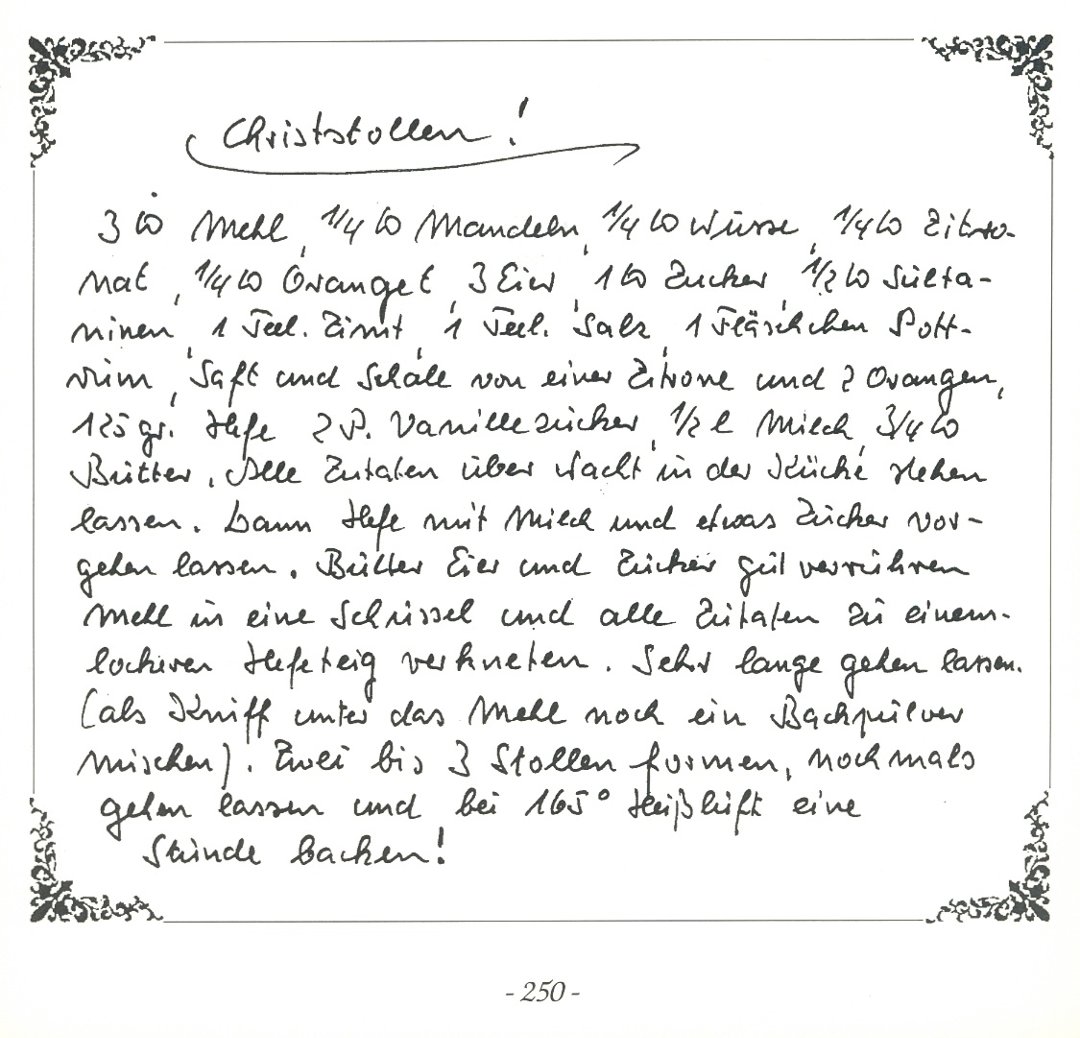 Christstollen!
3 ℔ Mehl, 1/4 ℔ Mandeln, 1/4 ℔ Nüsse, 1/4 ℔ Zitro-
nat, 1/4 ℔ Oranget, 3 Eier, 1 ℔ Zucker, 1/2 ℔ Sulta-
ninen, 1 Teel. Zimt, 1 Teel. Salz, 1 Fläschchen Pott-
rum, Saft und Schale von einer Zitrone und 2 Orangen,
125 gr. Hefe 2 P. Vanillezucker, 1/2 l Milch, 3/4 ℔
Butter. Alle Zutaten über Nacht in der Küche stehen
lassen. Dann Hefe mit Milch und etwas Zucker vor-
gehen lassen. Butter Eier und Zucker gut verrühren
Mehl in eine Schüssel und alle Zutaten zu einem-
lockeren Hefeteig verkneten. Sehr lange gehen lassen.
(als Kniff unter das Mehl noch ein Backpulver
mischen). Zwei bis 3 Stollen formen, nochmals
gehen lassen und bei 165° Heißluft eine
Stunde backen!
- 250 -